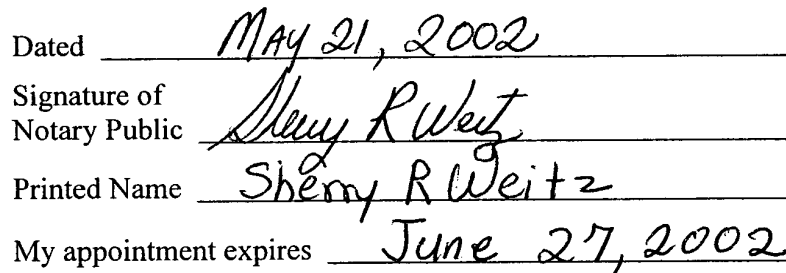 Dated MAY 21, 2002
Signature of
Notary Public Sherry R Weitz
Printed Name Sherry R Weitz
My appointment expires June 27, 2002